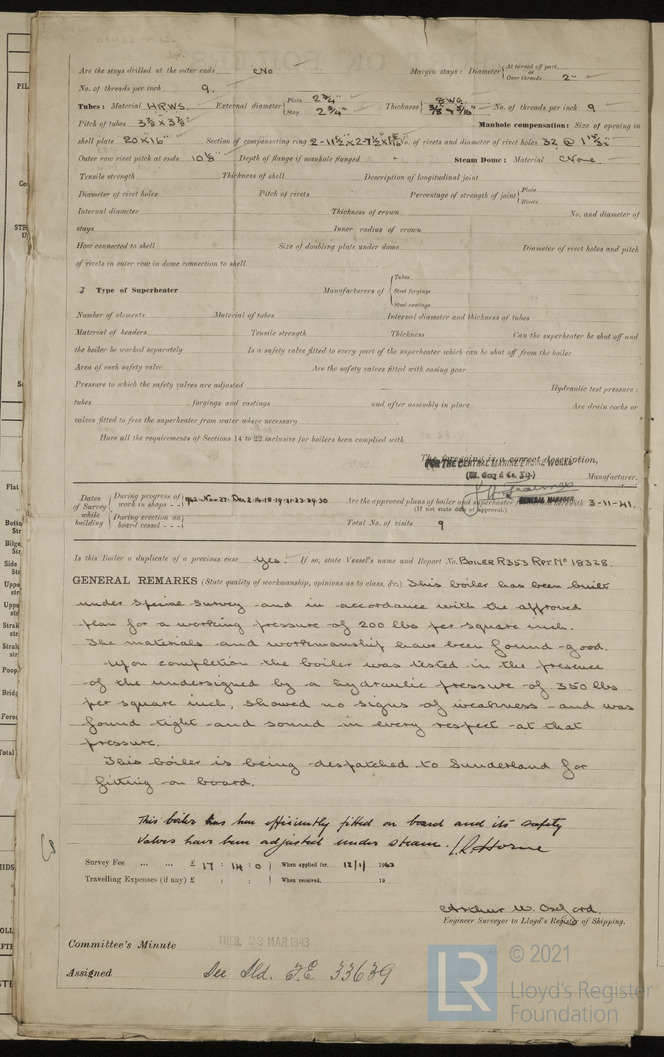 Are the stays drilled at the outer ends No Margin stays: Diameter { At turned off part, or Over threads 2"
No. of threads per inch 9.
Tubes: Material H.R.W.S. External diameter { Plain 2 3/4" Stay 2 3/4" Thickness { 8 W.G. 3/8" & 5/16" No. of threads per inch 9
Pitch of tubes 3 7/8" x 3 7/8" Manhole compensation: Size of opening in
shell plate 20 x 16" Section of compensating ring No. of rivets and diameter of rivet holes 32 @
Outer row rivet pitch at ends 10 1/8" Depth of flange if manhole flanged - Steam Dome: Material None.
Tensile strength Thickness of shell Description of longitudinal joint
Diameter of rivet holes Pitch of rivets Percentage of strength of joint { Plate Rivets
Internal diameter Thickness of crown No. and diameter of
stays Inner radius of crown
How connected to shell Size of doubling plate under dome Diameter of rivet holes and pitch
of rivets in outer row in dome connection to shell
Type of Superheater Manufacturers of { Tubes Steel forgings Steel castings
Number of elements Material of tubes Internal diameter and thickness of tubes
Material of headers Tensile strength Thickness Can the superheater be shut off and
the boiler be worked separately Is a safety valve fitted to every part of the superheater which can be shut off from the boiler
Area of each safety valve Are the safety valves fitted with easing gear
Pressure to which the safety valves are adjusted Hydraulic test pressure:
tubes forgings and castings and after assembly in place Are drain cocks or
valves fitted to free the superheater from water where necessary
Have all the requirements of Sections 14 to 22 inclusive for boilers been complied with
The foregoing is a correct description,
FOR THE CENTRAL MARINE ENGINE WORKS
(W. Gray & Co. Ltd.) Manufacturer.
GENERAL MANAGER
Dates of Survey while building { During progress of work in shops - - 1942. Nov. 27. Dec 2.16.18.19.21.23.29.30 Are the approved plans of boiler and superheater forwarded herewith 3-11-41.
(If not state date of approval.)
During erection on board vessel - - - Total No. of visits 9
Is this Boiler a duplicate of a previous case Yes. If so, state Vessel's name and Report No. BOILER R353 RPT. No 18328.
GENERAL REMARKS (State quality of workmanship, opinions as to class, &c.) This boiler has been built
under Special Survey and in accordance with the approved
plan for a working pressure of 200 lbs per square inch.
The materials and workmanship have been found good.
Upon completion the boiler was tested in the presence
of the undersigned by a hydraulic pressure of 350 lbs
per square inch, showed no signs of weakness and was
found tight and sound in every respect at that
pressure.
This boiler is being despatched to Sunderland for
fitting on board.
This boiler has been efficiently fitted on board and its safety
valves have been adjusted under steam. Horne
Survey Fee ... ... £ 17 : 14 : 0 When applied for, 12/1/1943
Travelling Expenses (if any) £ : : When received, 19
Arthur W. Oxford.
Engineer Surveyor to Lloyd's Register of Shipping.
Committee's Minute TUES. 23 MAR 1943
Assigned See Sld. F.E. 33639
LR © 2021
Lloyd's Register
Foundation